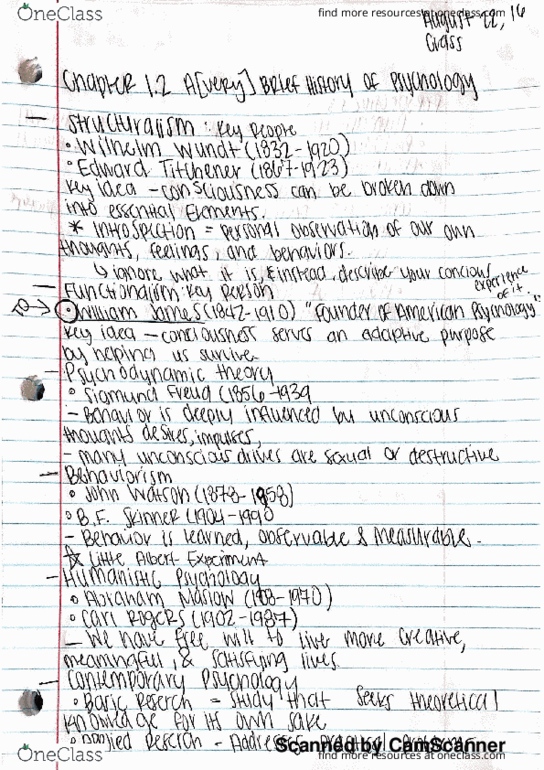 OneClass
find more resources at oneclass.com
August 22, 16
Class
Chapter 1.2 A[very] Brief History of Psychology
— Structuralism: Key people
• Wilhelm Wundt (1832-1920)
• Edward Titchener (1867-1923)
Key idea - consciousness can be broken down
into essential Elements.
* Introspection = personal observation of our own
thoughts, feelings, and behaviors.
↳ ignore what it is & instead, describe your concious experience of it.
— Functionalism: Key person
William James (1842-1910) "Founder of American Psychology"
Key idea - consciousness serves an adaptive purpose
by helping us survive
— Psychodynamic theory
• Sigmund Freud (1856-1939
- Behavior is deeply influenced by unconscious
thoughts desires, impulses,
- many unconscious drives are sexual or destructive
— Behaviorism
• John Watson (1878-1958)
• B.F. Skinner (1904-1990
- Behavior is learned, observable & measurable.
☆ Little Albert Experiment
— Humanistic Psychology
• Abraham Maslow (1908-1970)
• Carl Rogers (1902-1987)
— We have free will to live more creative,
meaningful, & satisfying lives.
— Contemporary Psychology
• Basic Reserch = study that seeks theoretical
knowledge for its own sake
• Applied Reserch - Addresses
Scanned by CamScanner
OneClass
find more resources at oneclass.com